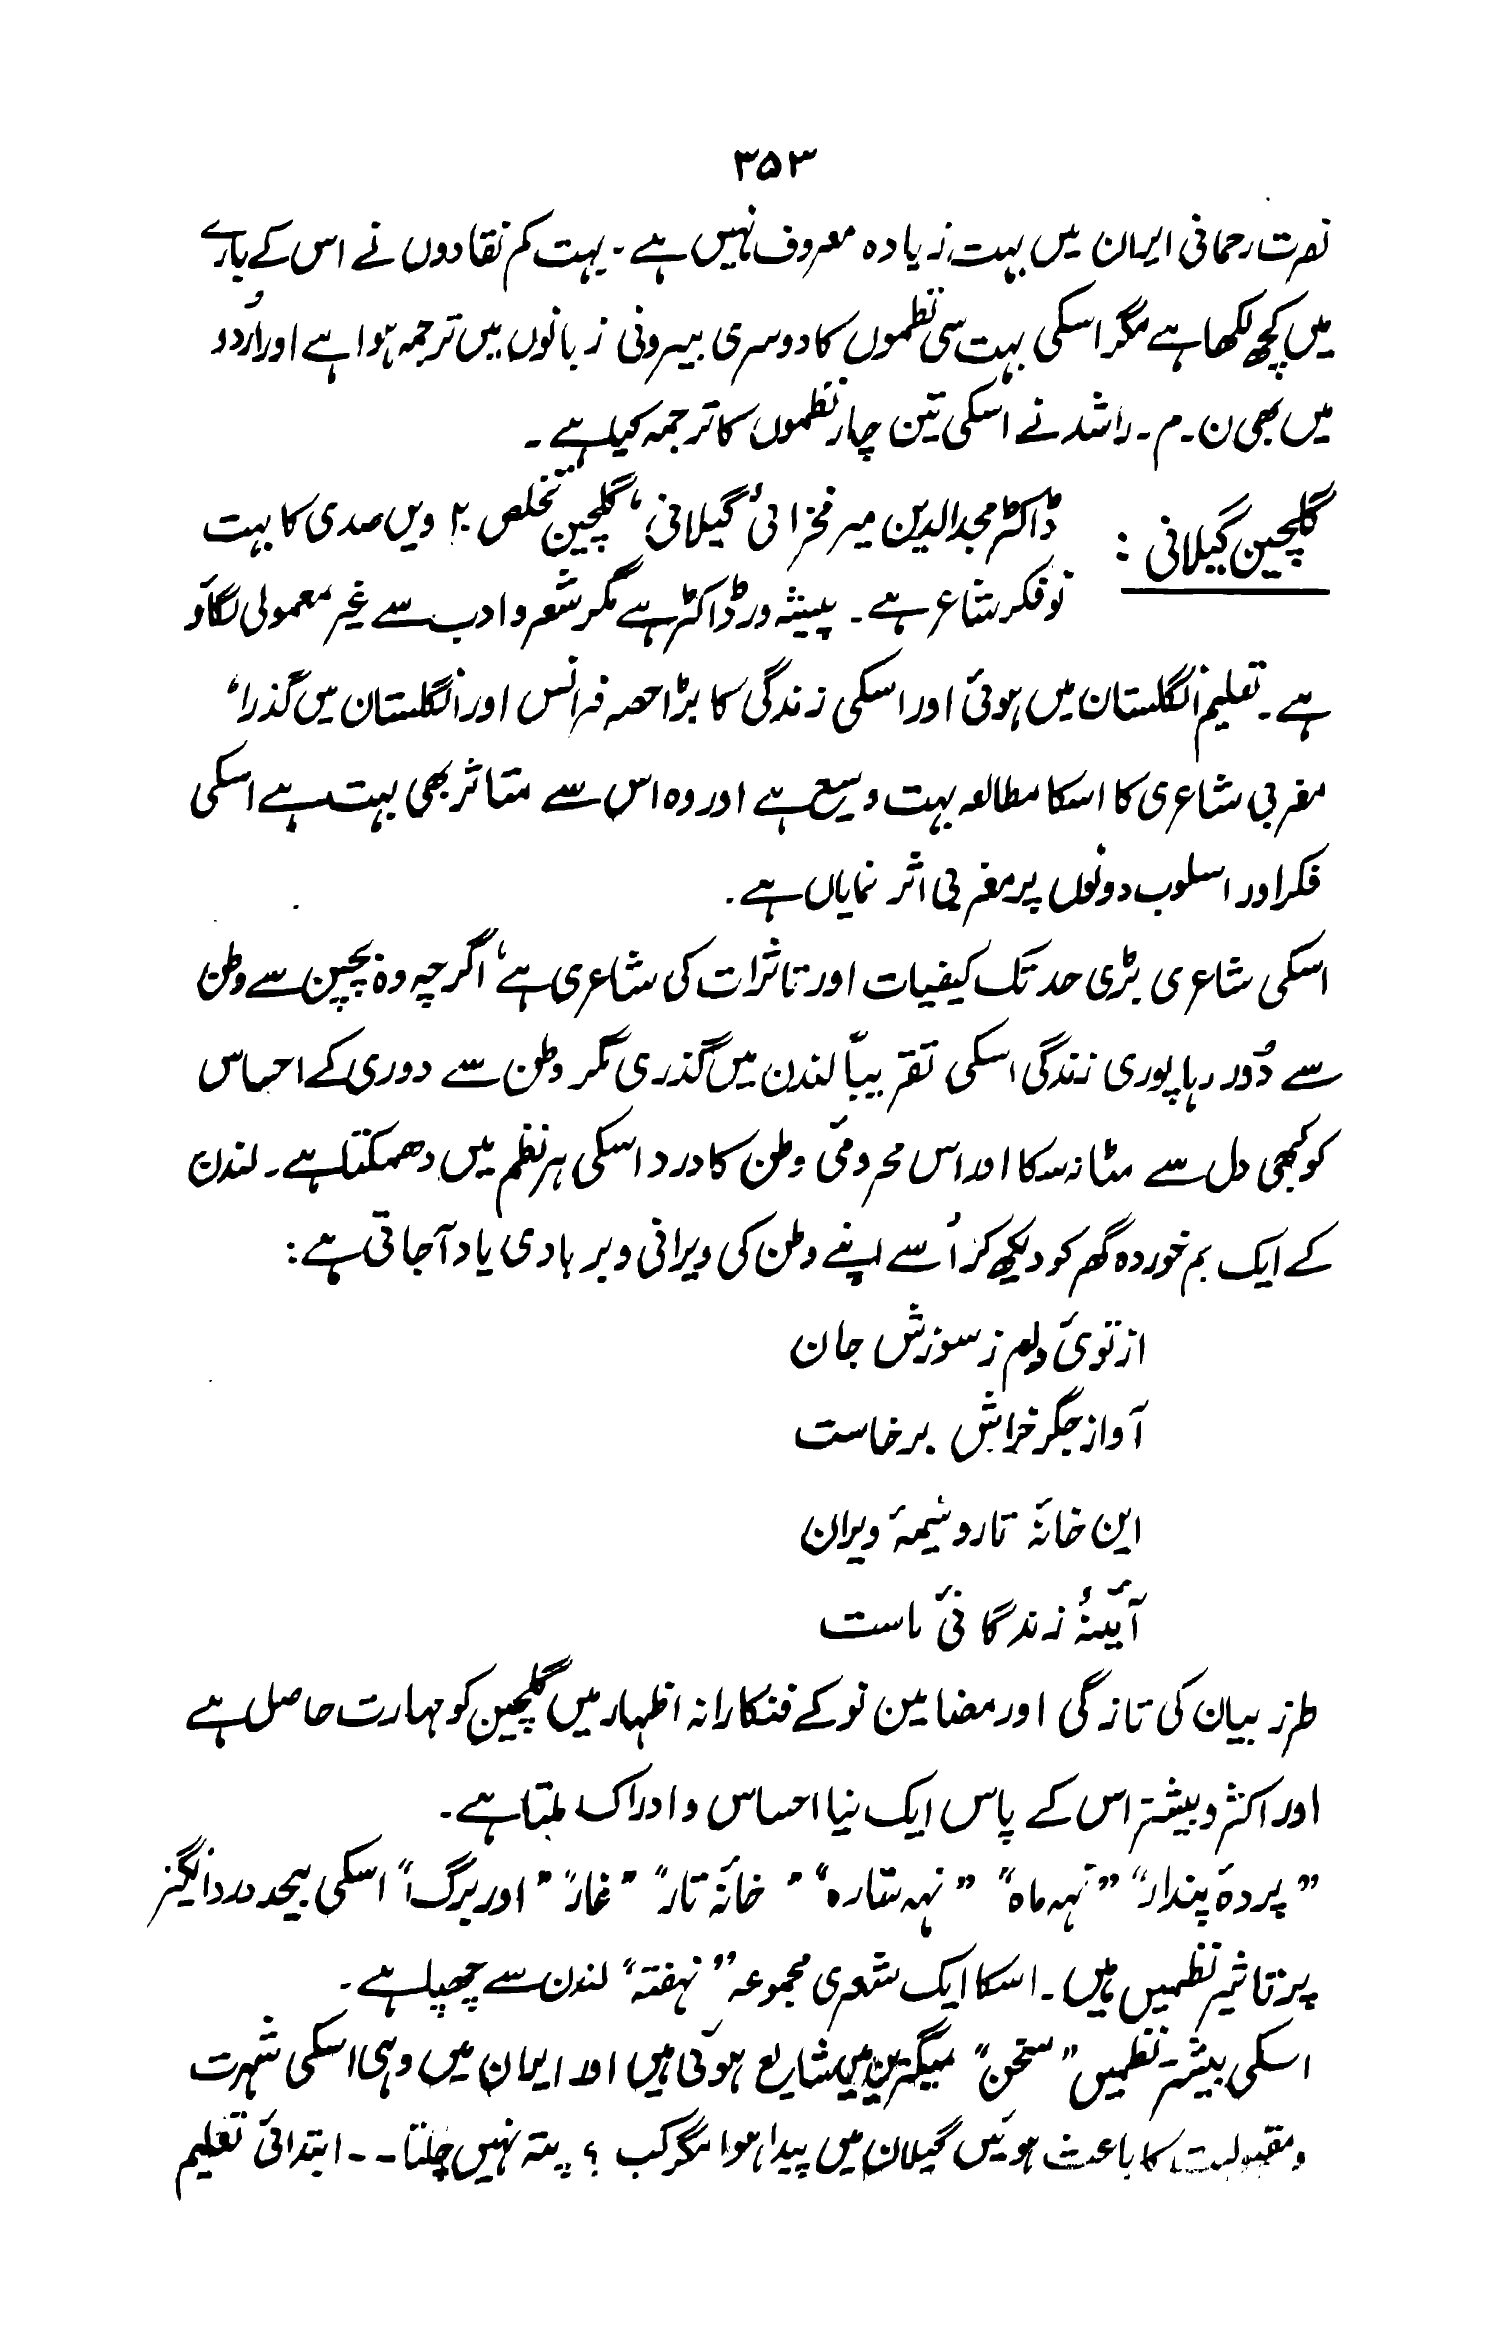 ۳۵۳
نصرت رحمانی ایران میں بہت زیادہ معروف نہیں ہے ۔ بہت کم نقادوں نے اس کے بارے
میں کچھ لکھا ہے مگر اسکی بہت سی نظموں کا دوسری بیرونی زبانوں میں ترجمہ ہوا ہے اور اُردو
میں بھی ن ۔ م ۔ راشد نے اسکی تین چار نظموں کا ترجمہ کیا ہے ۔
گلچین گیلانی : ڈاکٹر مجدالدین میر فخرائی گیلانی، گلچین تخلص ۲۰ ویں صدی کا بہت
نو فکر شاعر ہے ۔ پیشہ ور ڈاکٹر ہے مگر شعر و ادب سے غیر معمولی لگاؤ
ہے ۔ تعلیم انگلستان میں ہوئی اور اسکی زندگی کا بڑا حصہ فرانس اور انگلستان میں گذرا،
مغربی شاعری کا اسکا مطالعہ بہت وسیع ہے اور وہ اس سے متاثر بھی بہت ہے اسکی
فکر اور اسلوب دونوں پر مغربی اثر نمایاں ہے ۔
اسکی شاعری بڑی حد تک کیفیات اور تاثرات کی شاعری ہے، اگرچہ وہ بچپن سے وطن
سے دُور رہا پوری زندگی اسکی تقریباً لندن میں گذری مگر وطن سے دوری کے احساس
کو کبھی دل سے مٹا نہ سکا اور اس محرومیٔ وطن کا درد اسکی ہر نظم میں دھمکتا ہے ۔ لندن
کے ایک بم خوردہ گھر کو دیکھ کر اُسے اپنے وطن کی ویرانی و بربادی یاد آجاتی ہے :
از توئ دلم ز سوزش جان
آواز جگر خراش برخاست
این خانۂ تار و نیمۂ ویران
آئینۂ زندگانیٔ ماست
طرز بیان کی تازگی اور مضامین نو کے فنکارانہ اظہار میں گلچین کو مہارت حاصل ہے
اور اکثر و بیشتر اس کے پاس ایک نیا احساس و ادراک ملتا ہے ۔
”پردۂ پندار“ ”نہہ ماہ“ ”نہہ ستارہ“ ” خانۂ تار“ ”غار“ ”اور برگ“ اسکی بیحد درد انگیز
پر تاثیر نظمیں ہیں ۔ اسکا ایک شعری مجموعہ ”نہفتہ“ لندن سے چھپا ہے ۔
اسکی بیشتر نظمیں ”سخن“ میگزین میں شایع ہوئی ہیں اور ایران میں وہی اسکی شہرت
و مقبولیت کا باعث ہوئیں گیلان میں پیدا ہوا مگر کب ؟ پتہ نہیں چلتا ۔ ۔ ابتدائی تعلیم